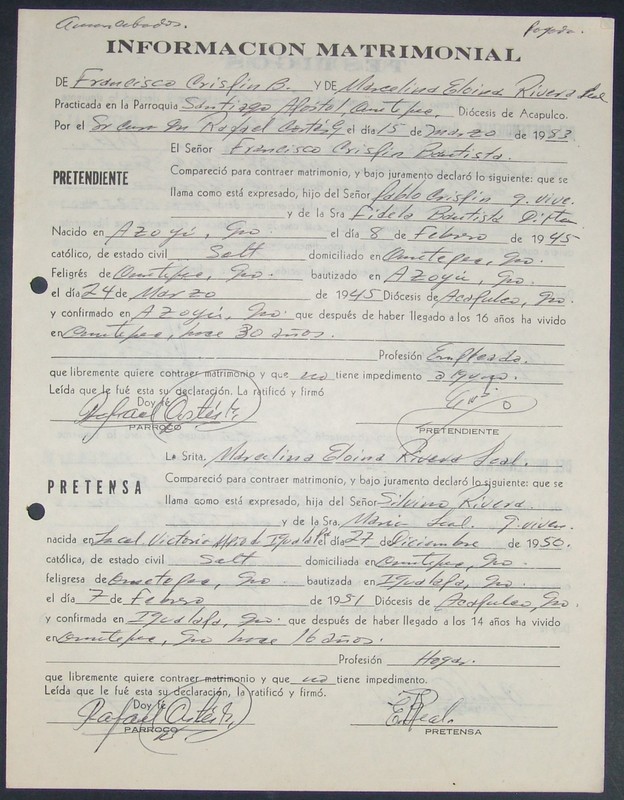 Amancebados.
INFORMACION MATRIMONIAL
DE Francisco Crisfin B. Y DE Marcelina Eloina Rivera Leal
Practicada en la Parroquia Santiago Apóstol Ometepec, Diócesis de Acapulco.
Por el Sr Cura Dn Rafael Cortés G, el día 15 de marzo de 1983
El Señor Francisco Crisfin Bautista.
PRETENDIENTE
Compareció para contraer matrimonio, y bajo juramento declaró lo siguiente: que se
llama como está expresado, hijo del Señor Pablo Crisfin q. vive.
y de la Sra Fidela Bautista Difta
Nacido en Azoyú, Gro. el día 8 de Febrero de 1945
católico, de estado civil Solt domiciliado en Ometepec, Gro.
Feligrés de Ometepec, Gro. bautizado en Azoyú, Gro.
el día 24 de Marzo de 1945 Diócesis de Acapulco, Gro.
y confirmado en Azoyú, Gro. que después de haber llegado a los 16 años ha vivido
en Ometepec, hace 30 años.
Profesión Empleado.
que libremente quiere contraer matrimonio y que no tiene impedimento alguno.
Leída que le fué esta su declaración. La ratificó y firmó
Doy fe
PARROCO
PRETENDIENTE
La Srita. Marcelina Eloina Rivera Leal.
PRETENSA
Compareció para contraer matrimonio, y bajo juramento declaró lo siguiente: que se
llama como está expresado, hija del Señor Silvino Rivera
y de la Sra. Maria Leal q. viven.
nacida en Local. Victoria Mpio de Igualapa el día 27 de Diciembre de 1950.
católica, de estado civil Solt domiciliada en Ometepec, Gro.
feligresa de Ometepec, Gro bautizada en Igualapa, Gro.
el día 7 de Febrero de 1951 Diócesis de Acapulco, Gro.
y confirmada en Igualapa, Gro. que después de haber llegado a los 14 años ha vivido
en Ometepec, Gro hace 16 años.
Profesión Hogar.
que libremente quiere contraer matrimonio y que no tiene impedimento.
Leída que le fué esta su declaración, la ratificó y firmó.
Doy fe
PARROCO
PRETENSA